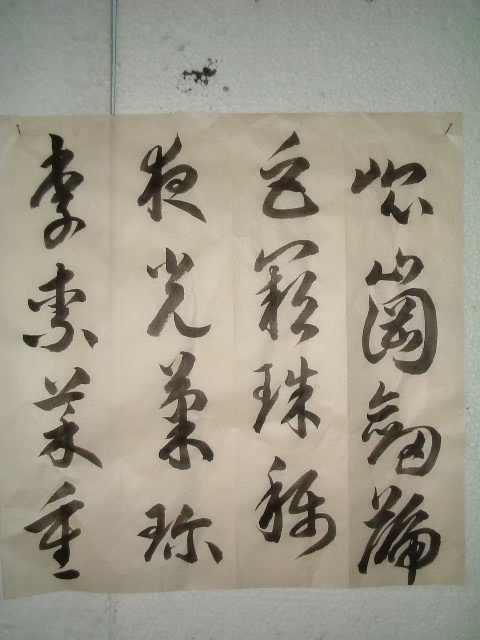 崑崗劍號
巨闕珠稱
夜光菓珍
李柰菜重